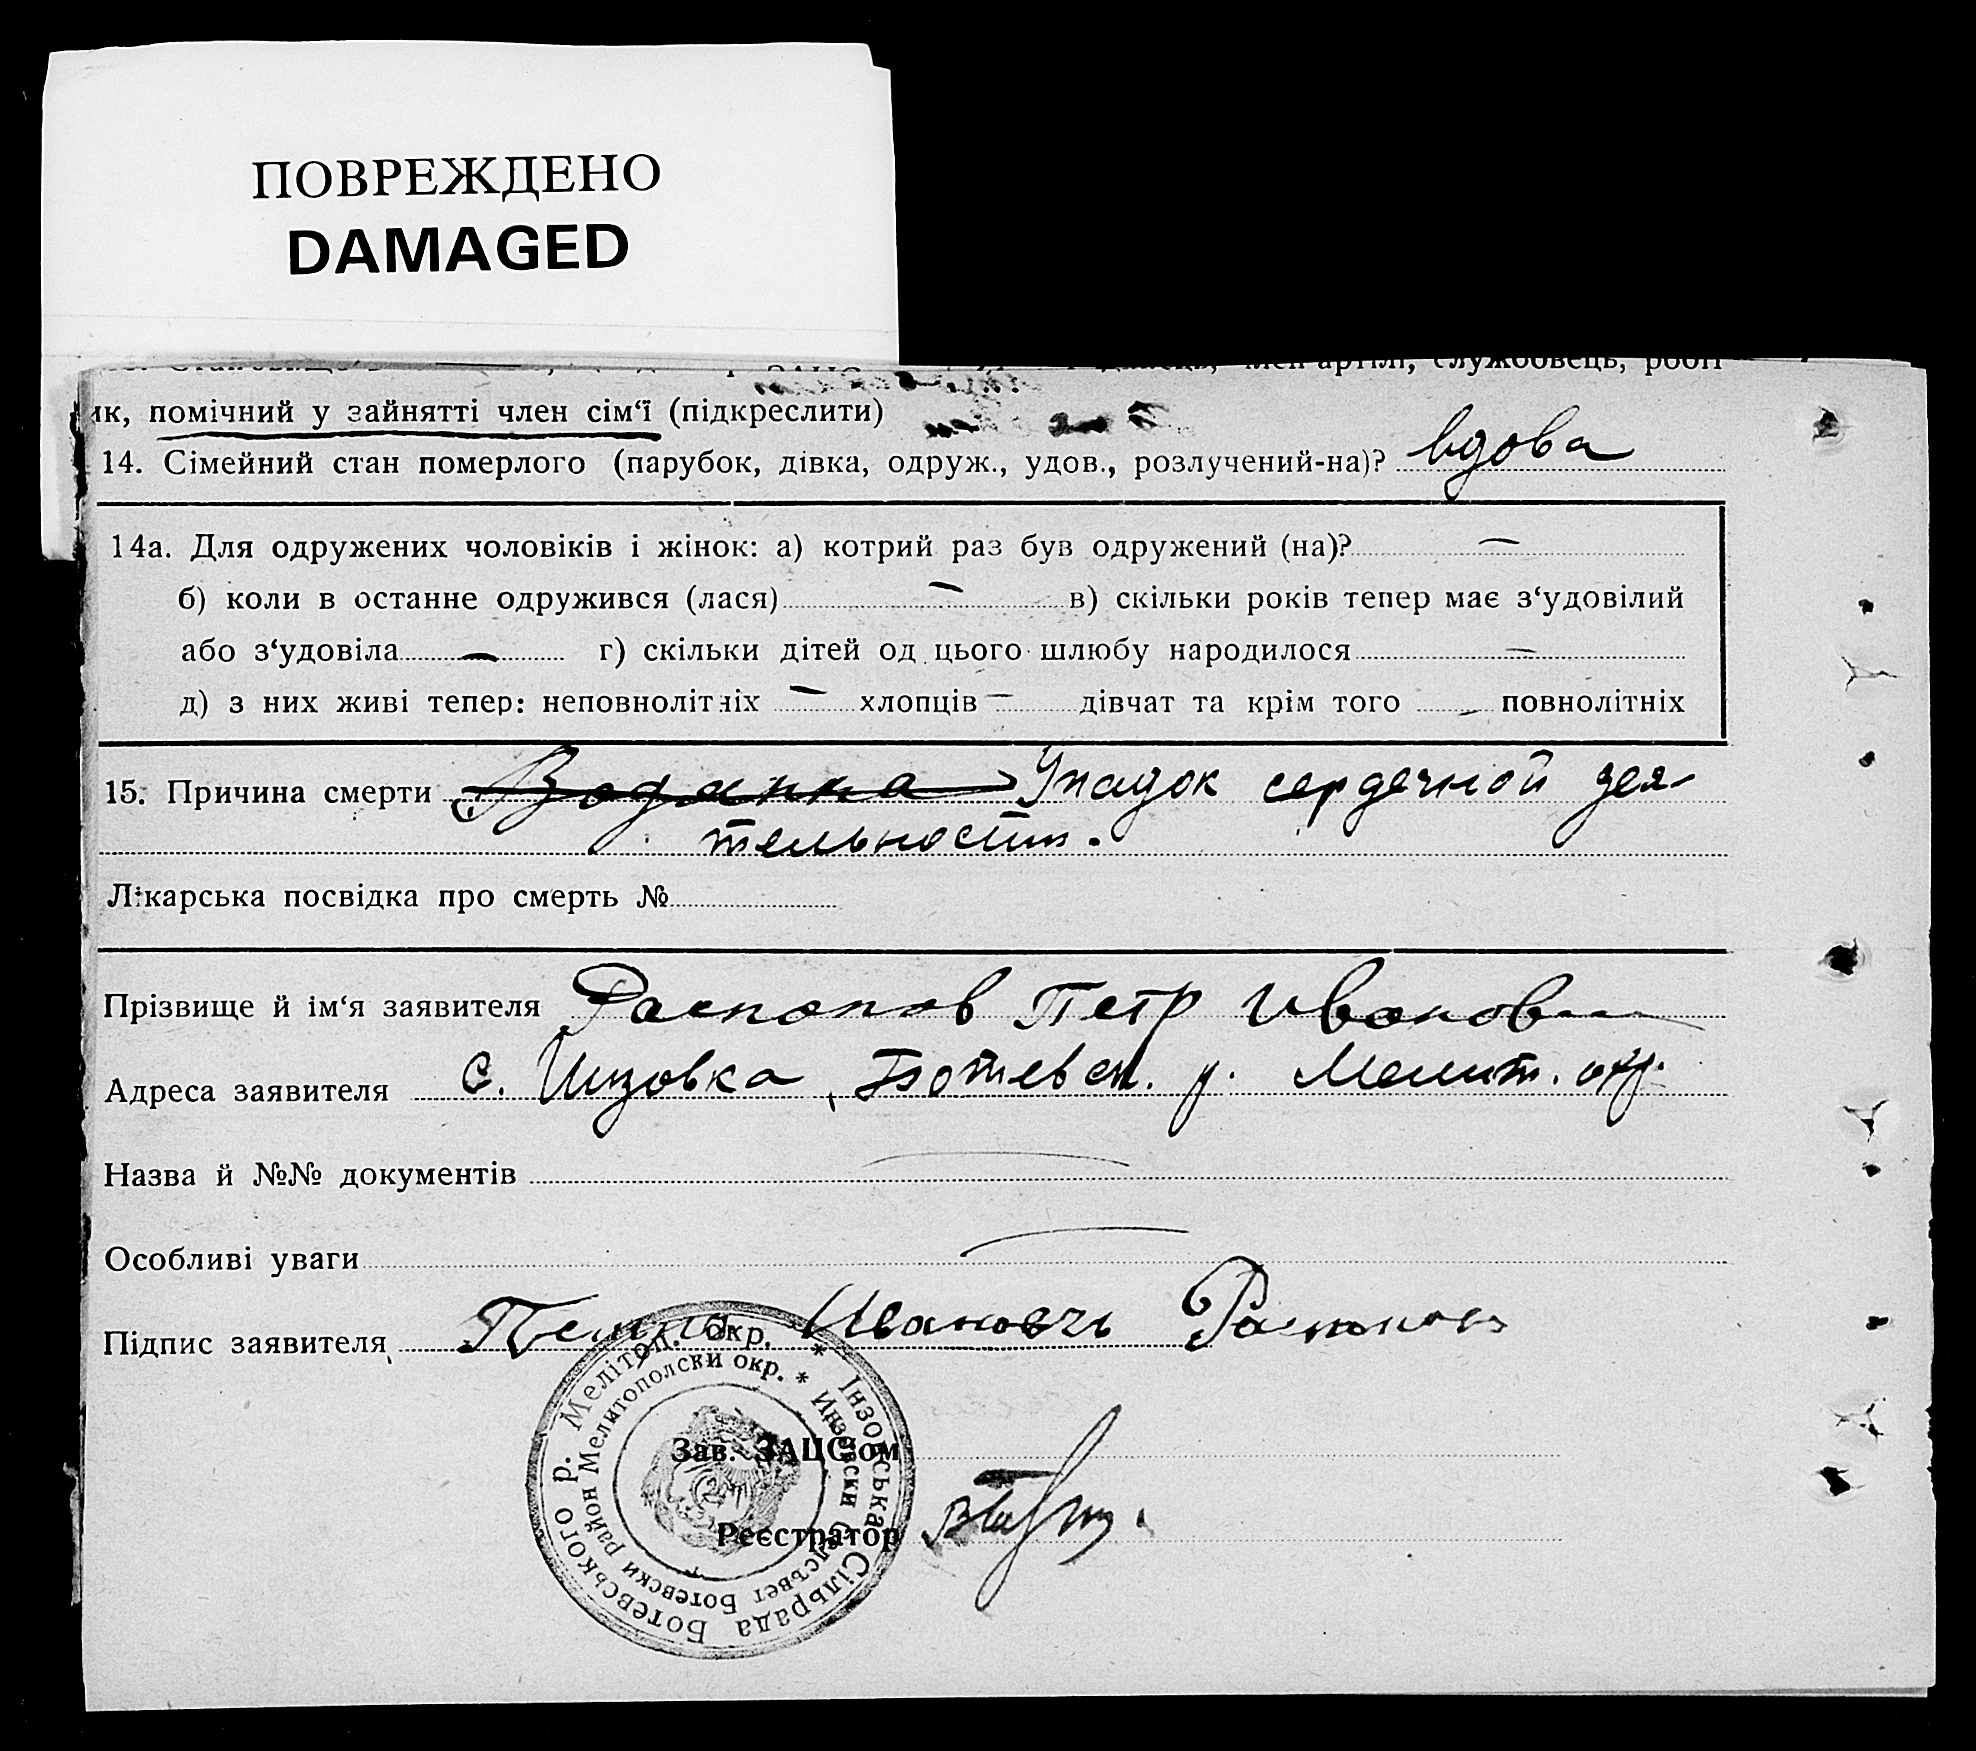 ПОВРЕЖДЕНО
DAMAGED
член артілі, службовець, робіт
ик, помічний у зайнятті член сім‘ї (підкреслити)
14. Сімейний стан померлого (парубок, дівка, одруж., удов., розлучений-на)? вдова
14а. Для одружених чоловіків і жінок: а) котрий раз був одружений (на)? —
б) коли в останне одружився (лася) — в) скільки років тепер має з‘удовілий
або з‘удовіла — г) скільки дітей од цього шлюбу народилося —
д) з них живі тепер: неповнолітніх — хлопців — дівчат та крім того — повнолітніх
15. Причина смерти Водянка Упадок сердечной дея-
тельности.
Лікарська посвідка про смерть №
Прізвище й ім‘я заявителя Распопов Петр Иванович
Адреса заявителя с. Инзовка, Ботевск. р. Мелит. окр.
Назва й №№ документів —
Особливі уваги —
Підпис заявителя Иванович Распопов
Інзовська Сільрада Ботевського р. Мелітоп. Окр. *
Инзовски Селсъвет Ботевски район Мелитополски окр. *
Зав. ЗАЦСом
Реєстратор